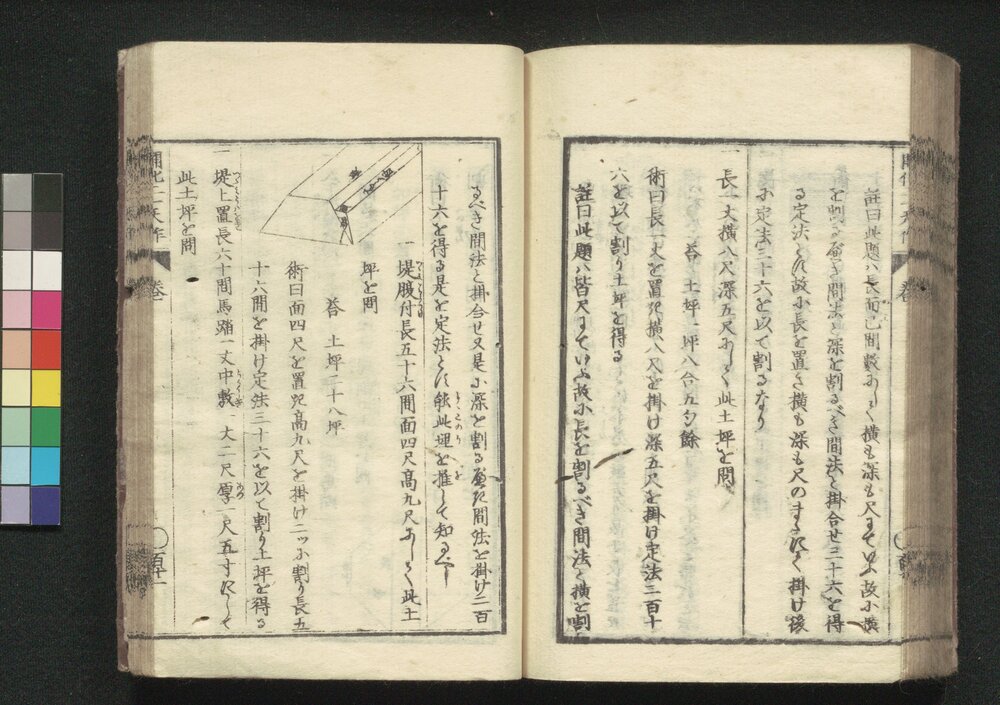 註曰此題ハ長面已間數ありて横も深も尺までゆゑ故小横
を割るべき間法と深を割るべき間法と掛合せ三十六を得
る定法とす故小長を置き横も深も尺のまゝにて掛け後
小定法三十六を以て割るなり
一 長一丈横八尺深五尺ありて此土坪を問
荅 土坪一坪八合五勺餘
術曰長一丈を置き横八尺を掛け深五尺を掛け定法二百十
六を以て割り土坪を得る
註曰此題ハ皆尺までいふ故小長を割るべき間法と横を割
るべき間法と掛合せ又是小深を割るべき間法を掛け二百
十六を得る是を定法とす能此理を推して知るべし
一 堤腹付長五十六間面四尺高九尺ありて此土
坪を問
荅 土坪二十八坪
術曰面四尺を置き高九尺を掛け二ツ小割り長五
十六間を掛け定法三十六を以て割り土坪を得る
一 堤上置長六十間馬踏一丈中敷一丈一尺厚一尺五寸にして
此土坪を問